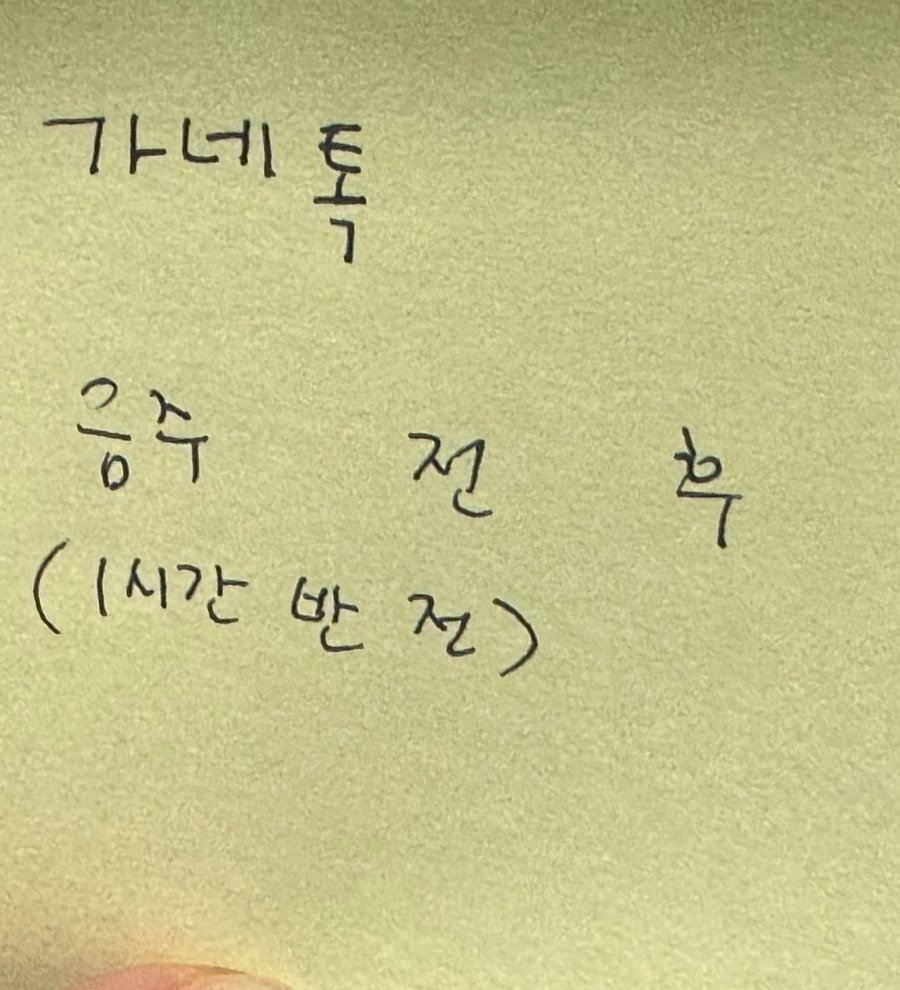 가네톡
음주 전 후
(1시간 반 전)